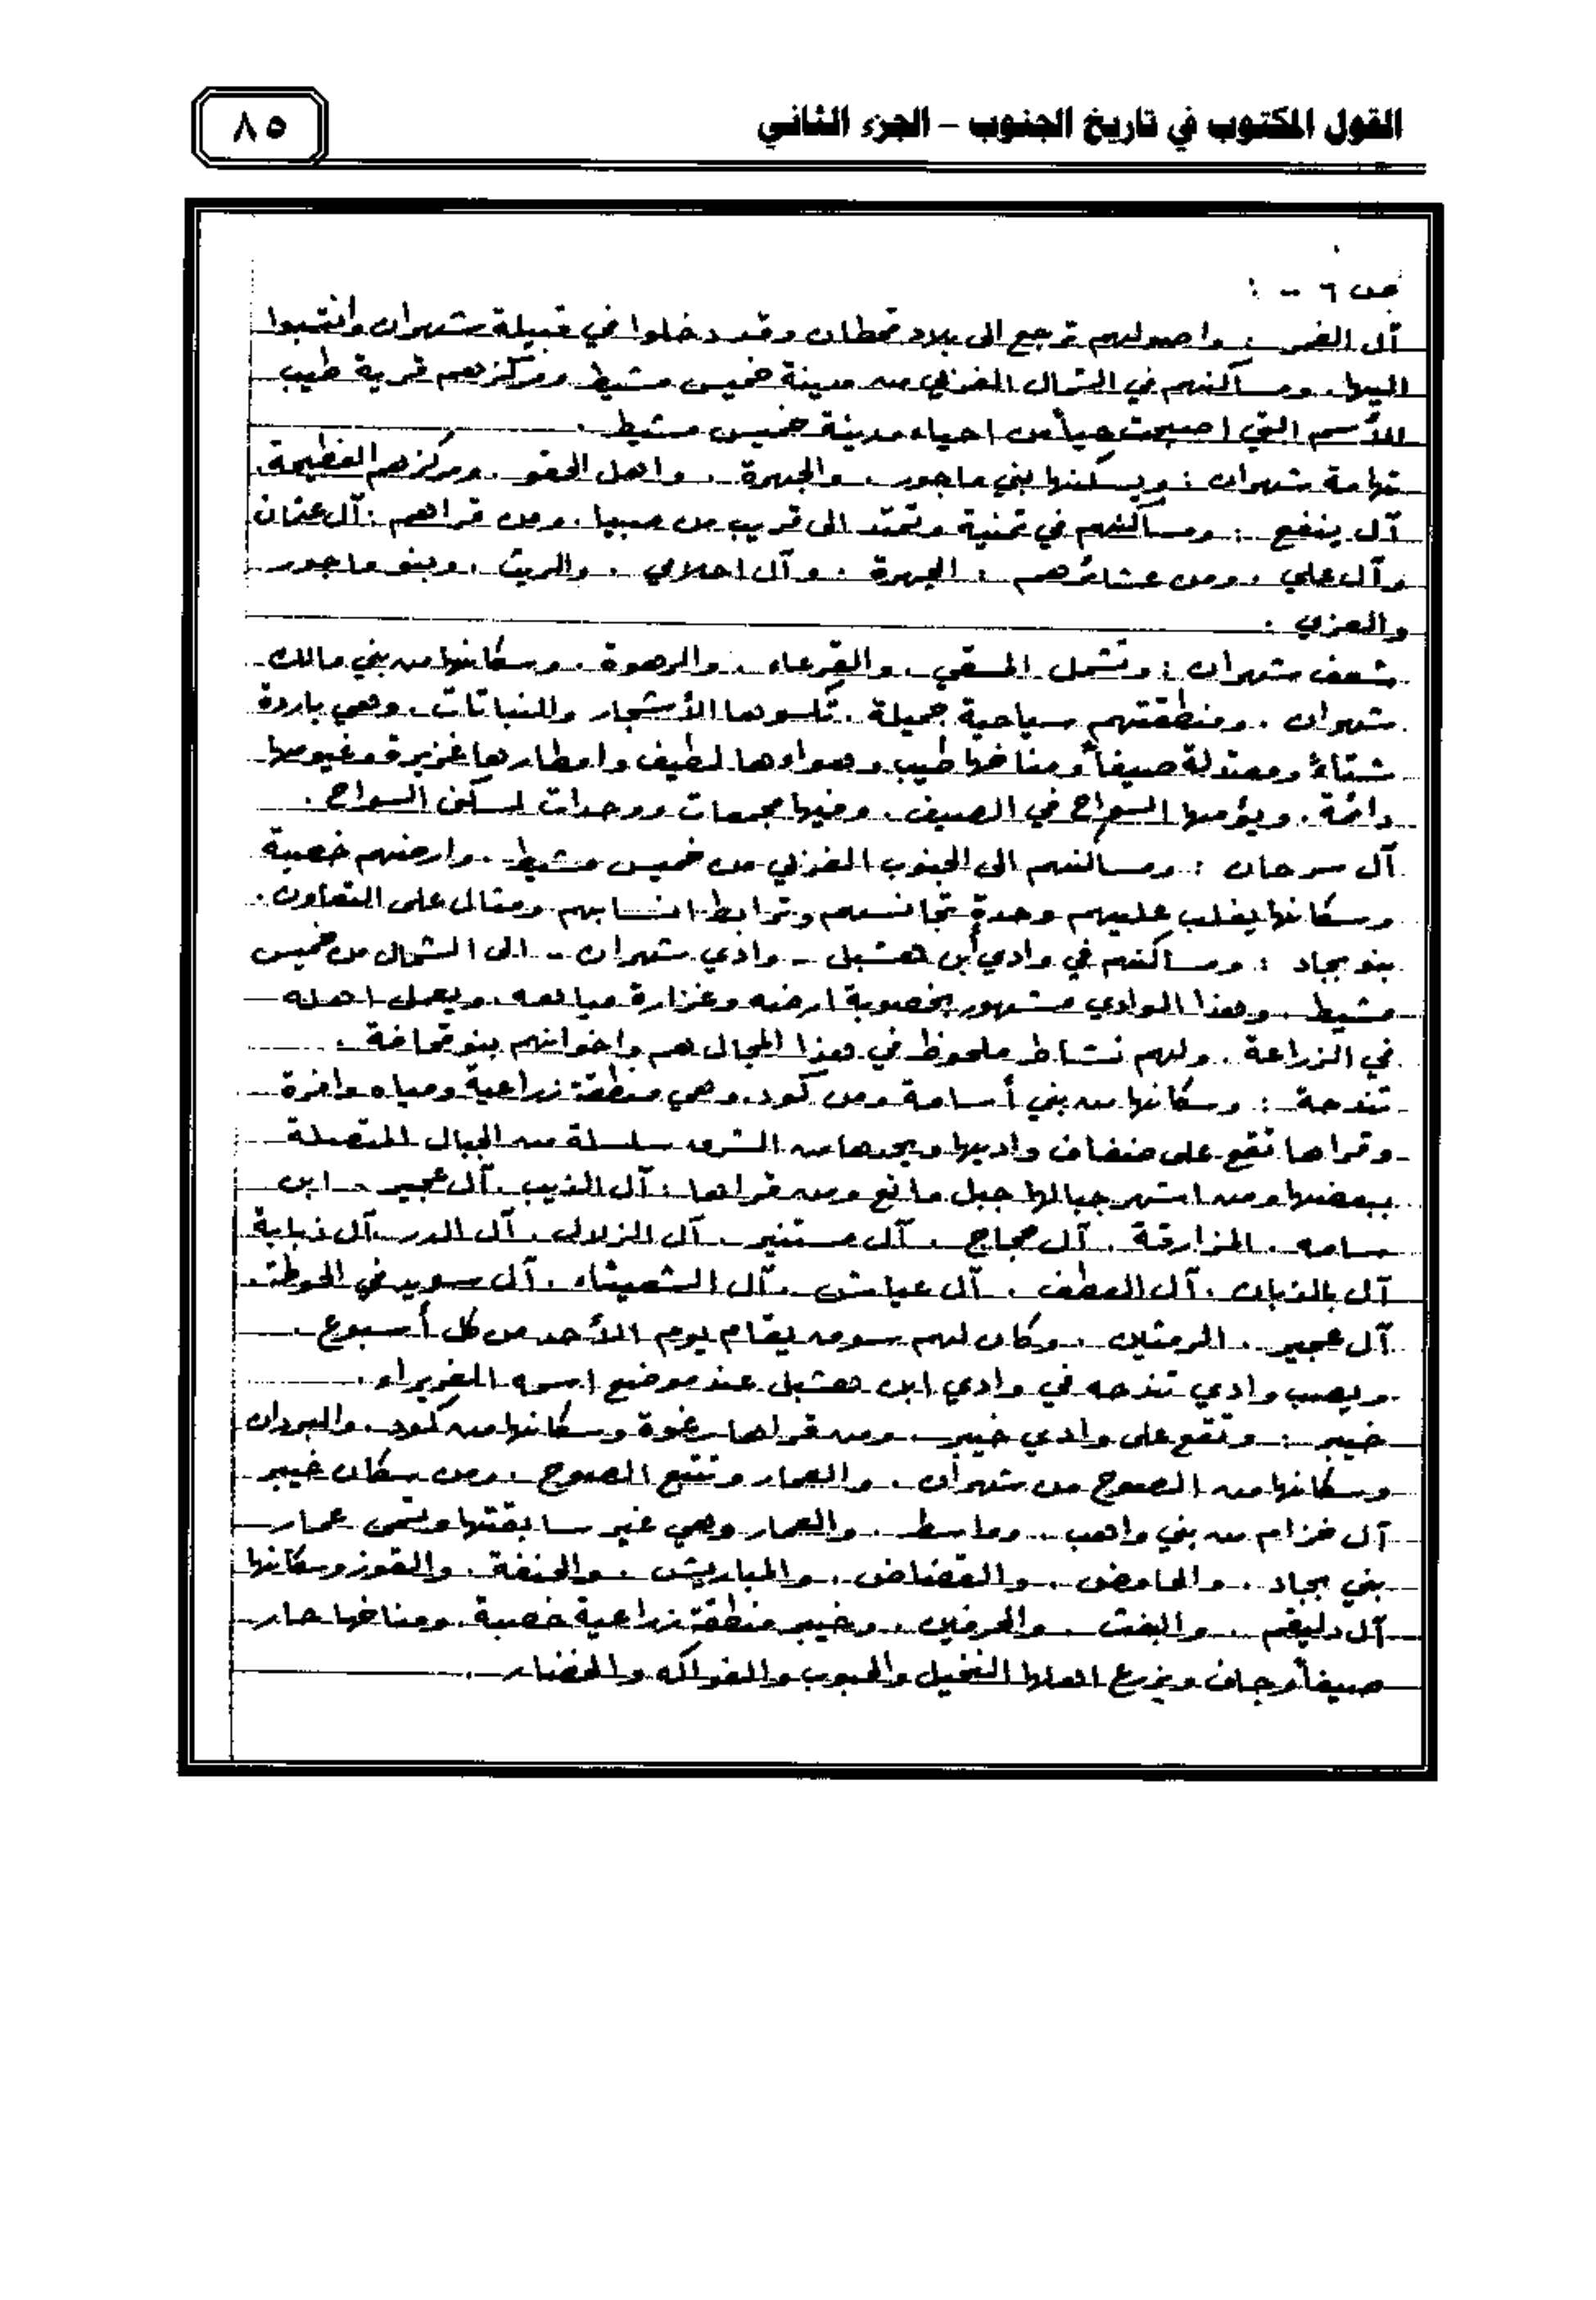 القول المكتوب في تاريخ الجنوب - الجزء الثاني
٨٥
ص ٦ - ١
آل الغمر : واصولهم ترجع الى بلاد قحطان وقد دخلوا في قبيلة شهران وانتسبوا
اليها . ومساكنهم في الشمال الغربي من مدينة خميس مشيط ومركزهم قرية طيب
الأسم التي اصبحت حياً من احياء مدينة خميس مشيط .
تهامة شهران : ويسكنها بني ماجور . والجهرة . واهل الحقو . ومركزهم الفطيحة
آل ينفع : ومساكنهم في تمنية وتمتد الى قريب من صبيا . ومن قراهم : آل عثمان
وآل علي . ومن عشائرهم : الجهرة . وآل احلامي . والريث . وبنو ماجور
والعزي .
شعف شهران : وتشمل المسقي . والقرعاء . والرهوة . وسكانها من بني مالك
شهران . ومنطقتهم سياحية جميلة . تكسوها الأشجار والنباتات . وهي باردة
شتاءً ومعتدلة صيفاً ومناخها طيب وهواوها لطيف وامطارها غزيرة وغيومها
دائمة . ويؤمها السواح في الصيف . وفيها مجمعات ووحدات لسكن السواح .
آل سرحان : ومساكنهم الى الجنوب الغربي من خميس مشيط . وارضهم خصبة
وسكانها يغلب عليهم وحدة تجانسهم وترابط انسابهم ومثال على التعاون .
بنو بجاد : ومساكنهم في وادي أبن هشبل - وادي شهران - الى الشمال من خميس
مشيط . وهذا الوادي مشهور بخصوبة ارضه وغزارة مياهه . ويعمل اهله
في الزراعة . ولهم نشاط ملحوظ في هذا المجال هم واخوانهم بنو قحافة .
تندحة : وسكانها من بني أسامة ومن كود . وهي منطقة زراعية ومياه وافرة
وقراها تقع على ضفاف واديها ويحدها من الشرق سلسلة من الجبال المتصلة
ببعضها ومن اشهر جبالها جبل مانع ومن قراها : آل الذيب . آل عجير . ابن
سامه . المزارقة . آل حجاج . آل مستنير . آل الزلال . آل الدر . آل ذبابة
آل بالذبان . آل العطف . آل عياش . آل الشعيثاء . آل سويد في الحوطة
آل عجير . الرمثين . وكان لهم سوق يقام يوم الأحد من كل أسبوع .
ويصب وادي تندحه في وادي ابن هشبل عند موضع اسمه الغريراء .
خيبر : وتقع على وادي خيبر . ومن قراها رغوة وسكانها من كود . والبردان
وسكانها من الصعوج من شهران . والعمار وتتبع الصعوج . ومن سكان خيبر
آل خزام من بني واهب . وماسط . والعمار وهي غير سابقتها وتسمى عمار
بني بجاد . والحامض . والقضاض . والمباريش . والحنفة . والقوز وسكانها
آل دليقم . والبغث . والحرفين . وخيبر منطقة زراعية خصبة . ومناخها حار
صيفاً وجاف ويزرع اهلها النخيل والحبوب والفواكه والخضار .